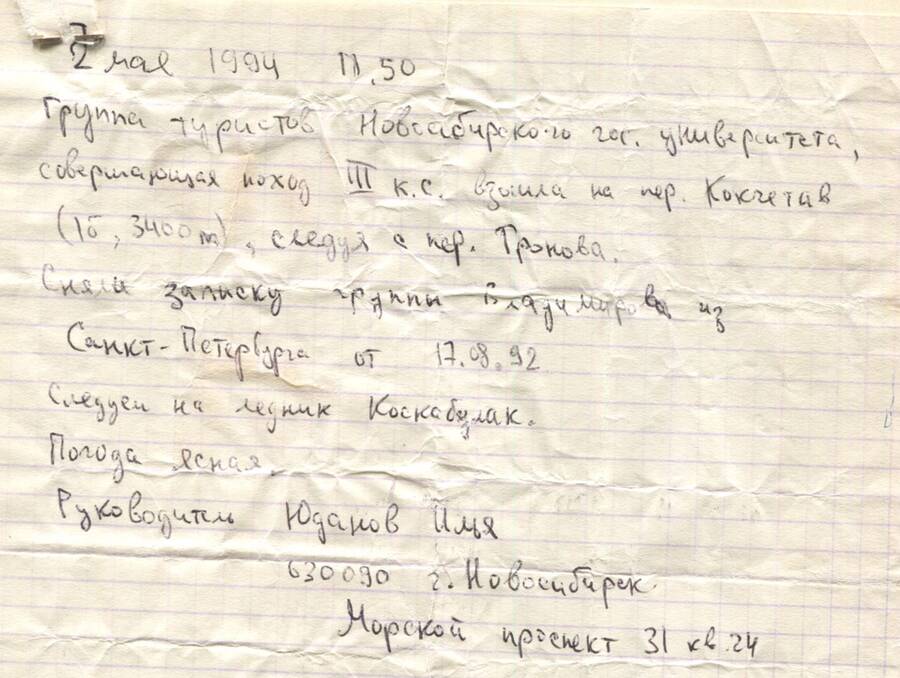 2 мая 1994 11.50
Группа туристов Новосибирского гос. университета,
совершающая поход III к.с. взошла на пер. Кокчетав
(1б, 3400 m), следуя с пер. Тронова.
Сняли записку группы Владимирова из
Санкт-Петербурга от 17.08.92
Следуем на ледник Коскабулак.
Погода ясная.
Руководитель Юданов Илья
630090 г. Новосибирск
Морской проспект 31 кв. 24